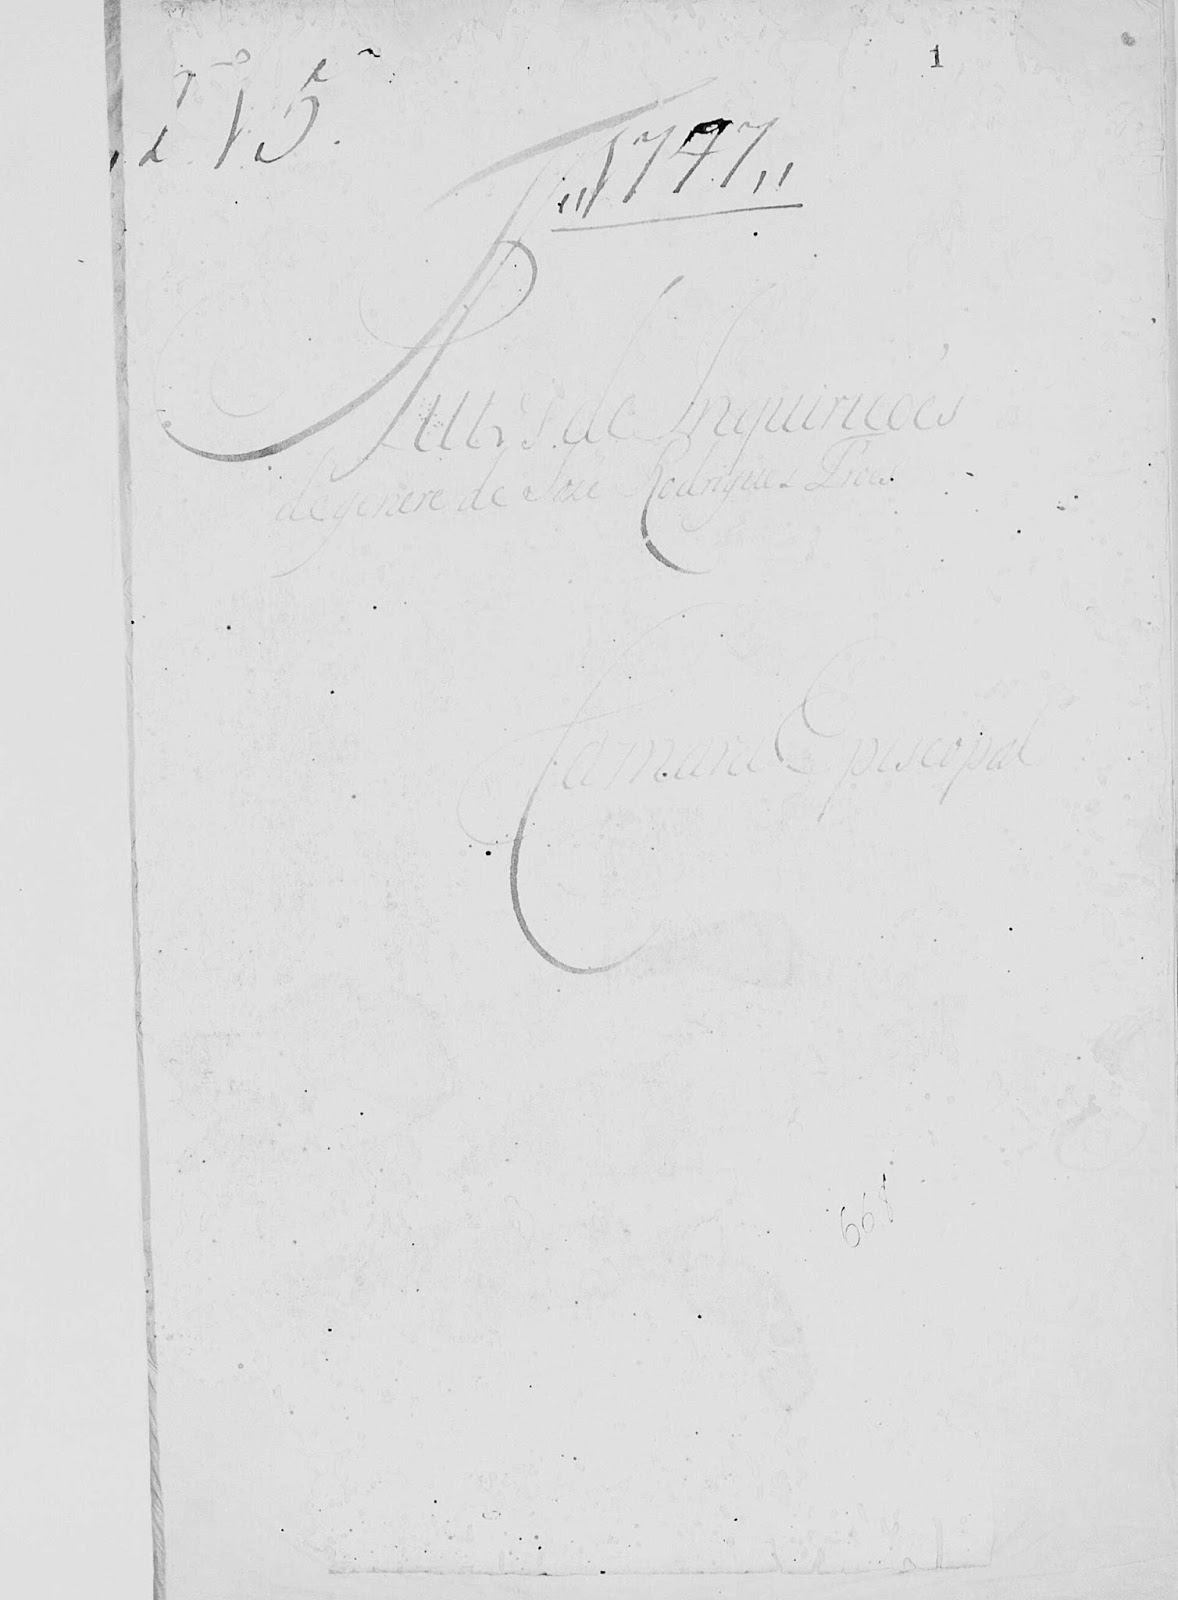 1
15
"1747"
Autos de Inquiricoẽs
de genere de Joze Rodrigues Froes
Camara Episcopal
668